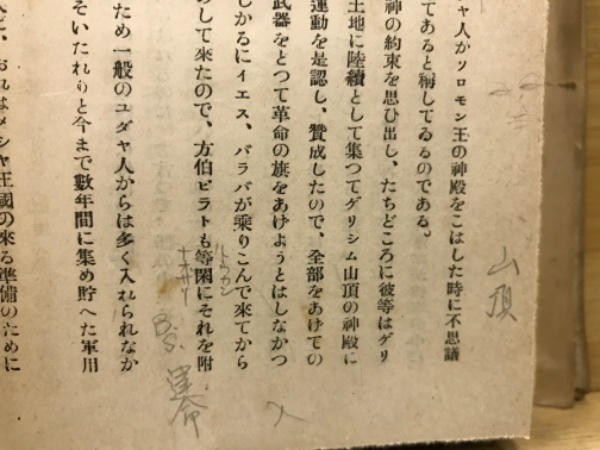 山頂
ヤ人がソロモン王の神殿をこはした時に不思議
てあると稱してゐるのである。
神の約束を思ひ出し、たちどころに彼等はゲリ
土地に陸續として集つてゲリシム山頂の神殿に
運動を是認し、賛成したので、全部をあげての
武器をとつて革命の旗をあげようとはしなかつ
しかるにイエス、バラバが乘りこんで來てから
らして來たので、方伯ピラトも等閑にそれを附
トウカン
ナホザリ
ため一般のユダヤ人からは多く入れられなか
そいたれりと今まで數年間に集め貯へた軍用
おれはメシヤ王國の來る準備のために